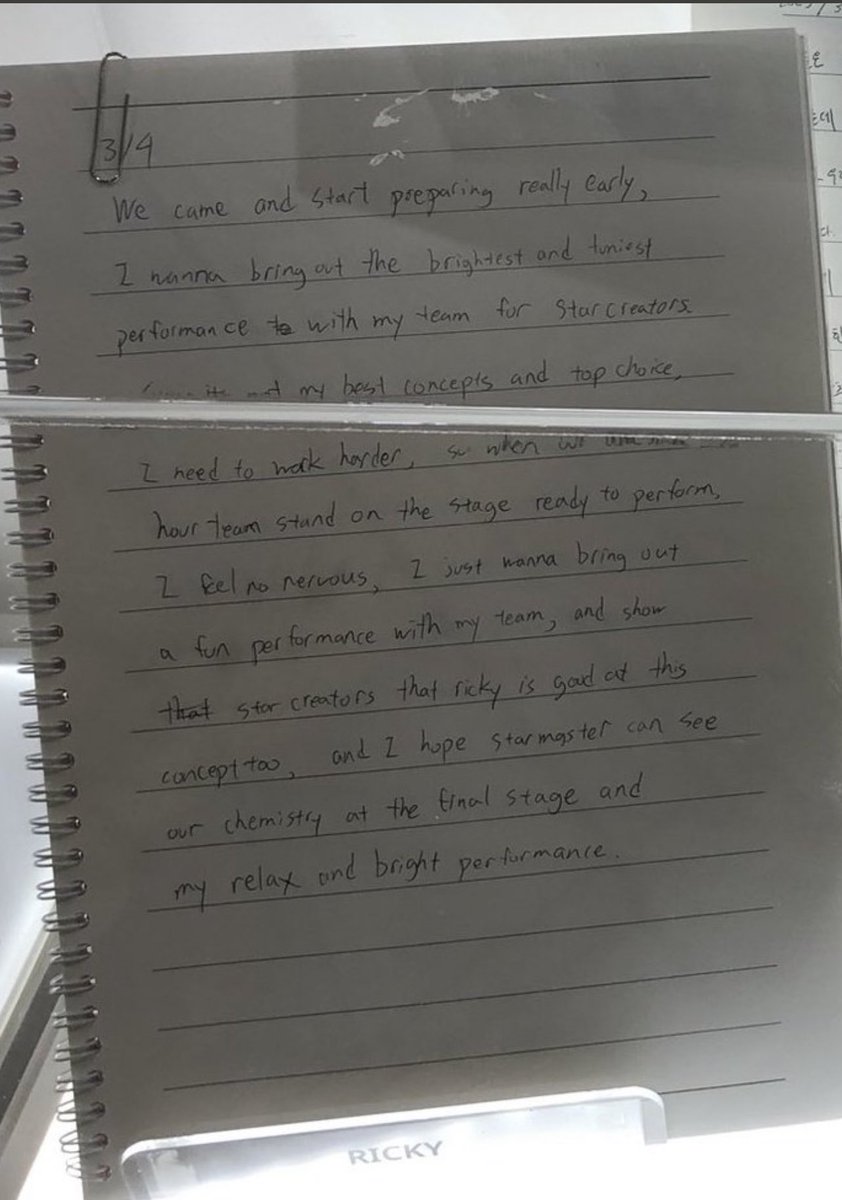 3/4
We came and start preparing really early,
I wanna bring out the brightest and funiest
performance with my team for Starcreators.
my best concepts and top choice,
I need to work harder, so when we
hour team stand on the stage ready to perform,
I feel no nervous, I just wanna bring out
a fun performance with my team, and show
that star creators that ricky is good at this
concept too, and I hope starmaster can see
our chemistry at the final stage and
my relax and bright performance.
RICKY